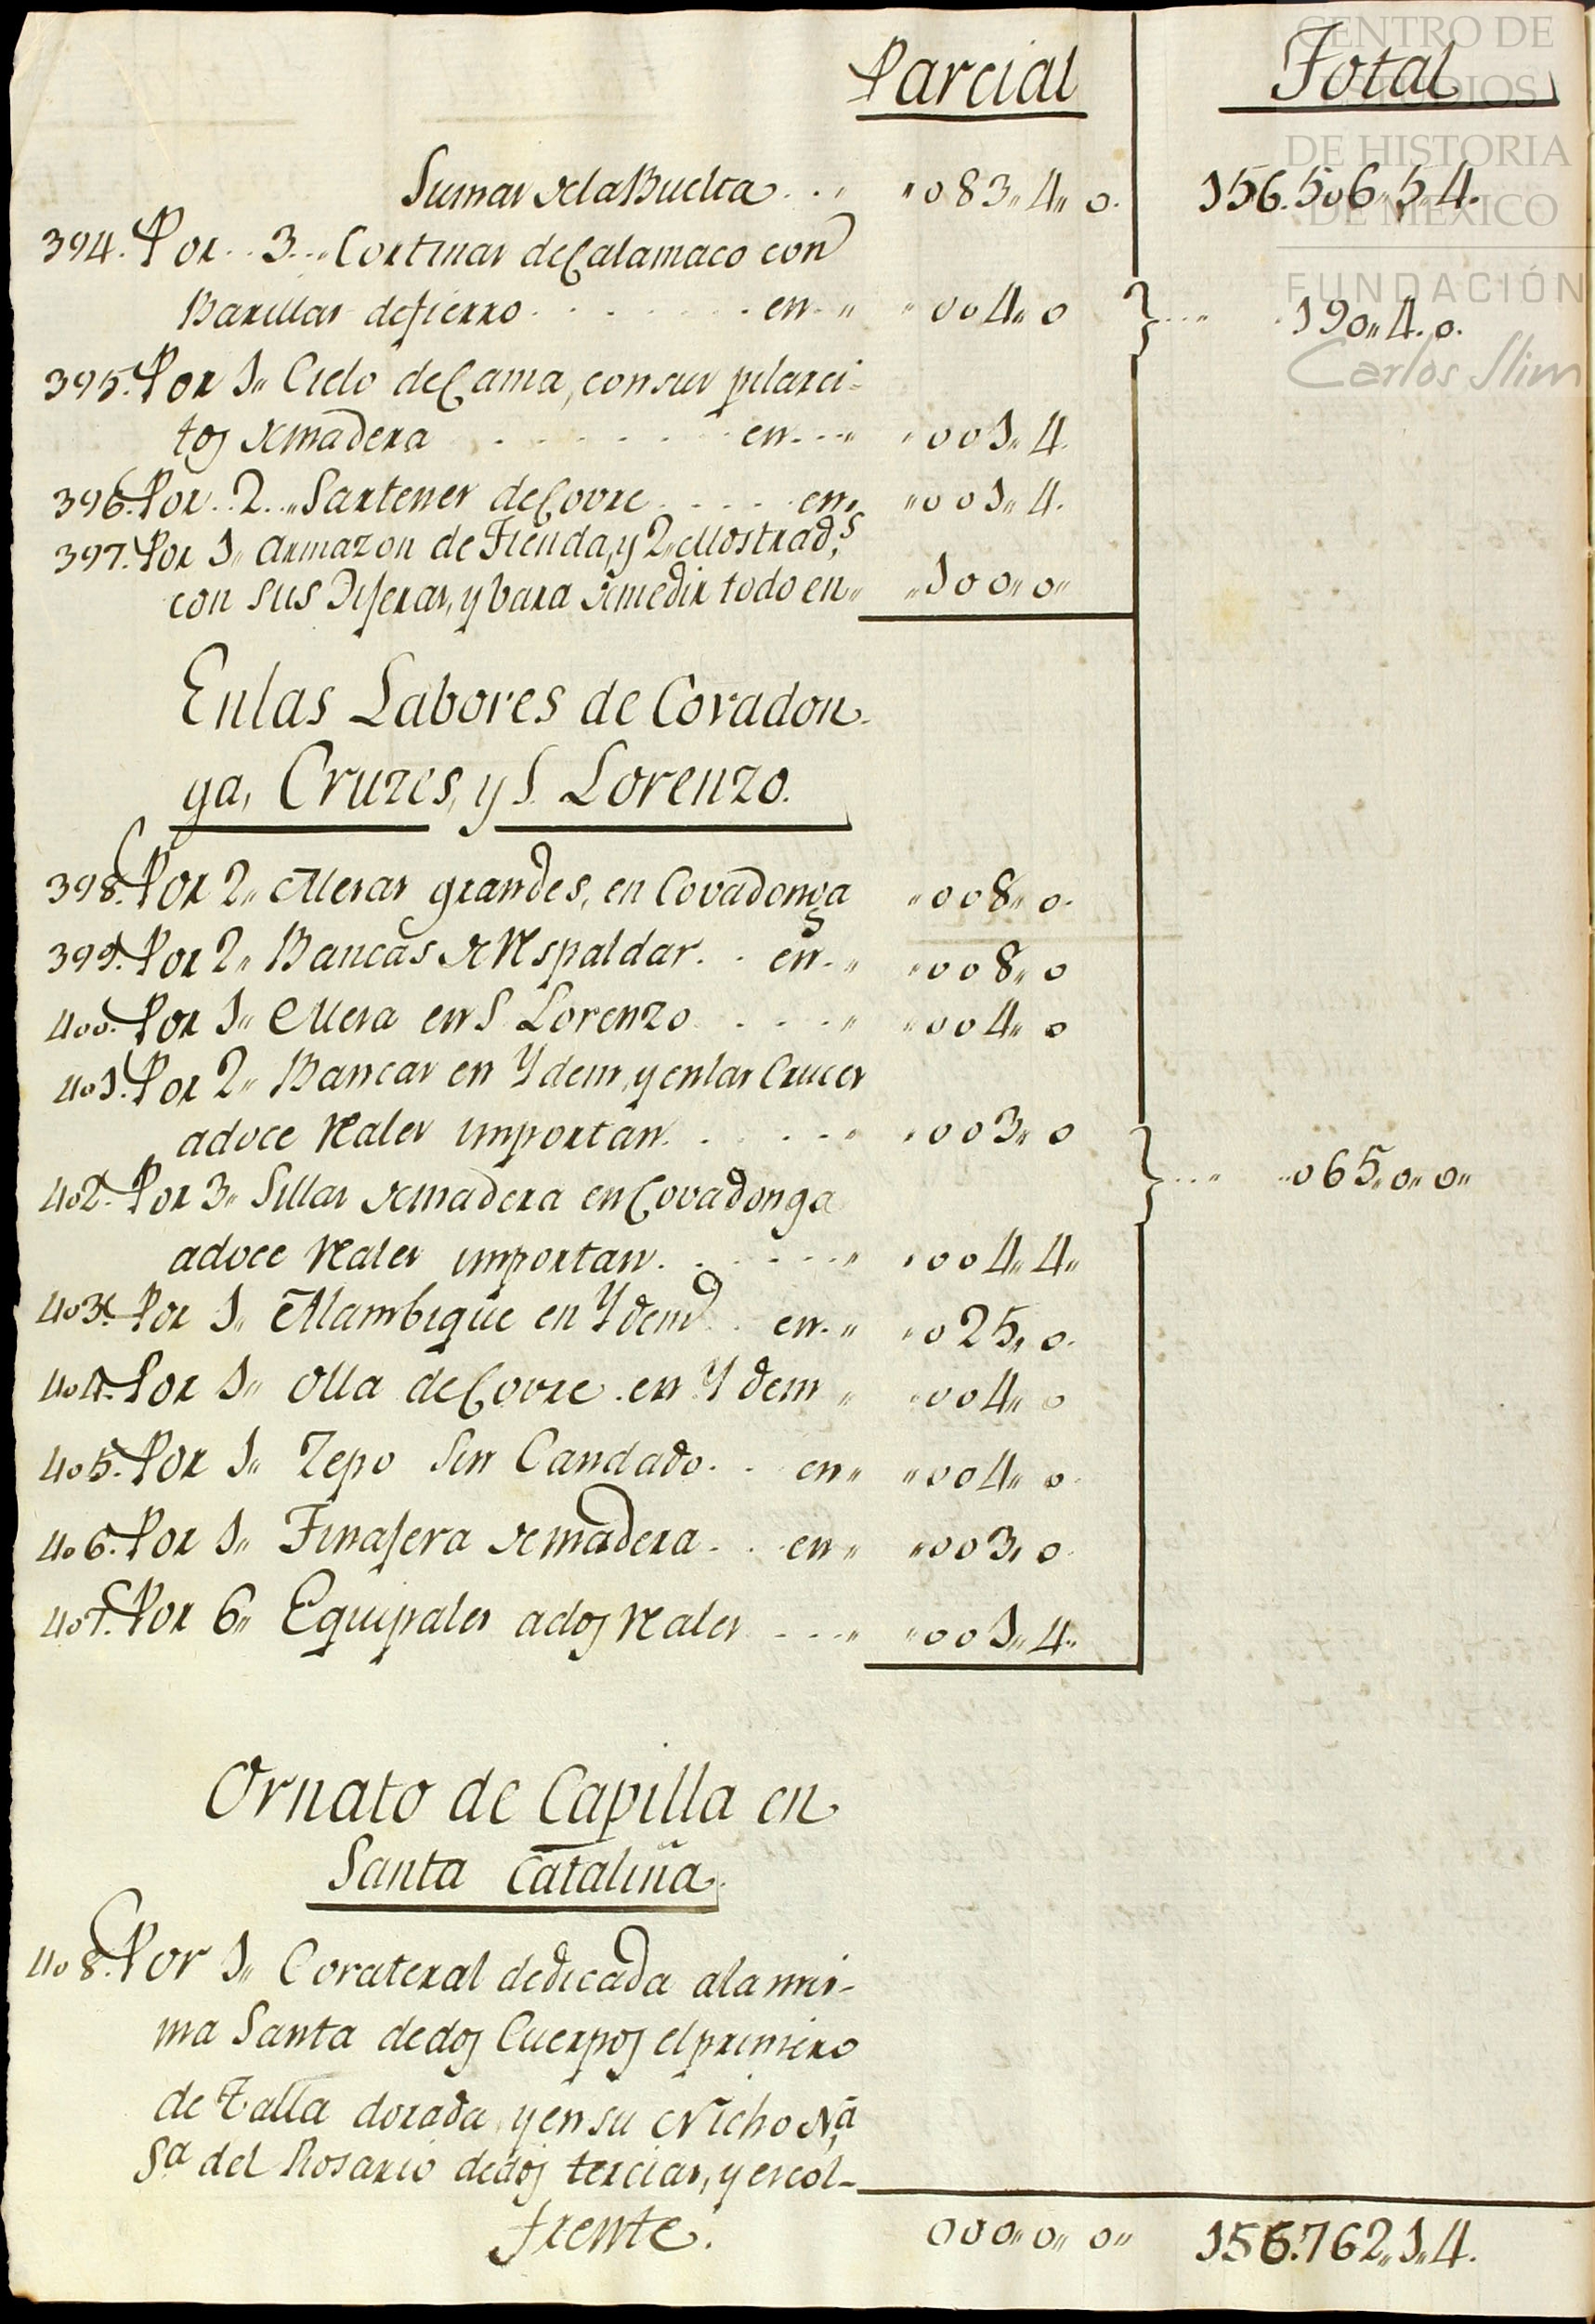 CENTRO DE
ESTUDIOS
DE HISTORIA
DE MÉXICO
FUNDACIÓN
Carlos Slim
Parcial Total
Sumas de la Buelta . . ,, ,,083,,4,,0. 156.506,,5,,4.
394. Por . . 3 . . ,, Cortinas de Calamaco con
Barillas de fierro . . . . . . . en . ,, ,,004,,0 } . . . ,, .190,,4.0.
395. Por 1,, Cielo de Cama, con sus pilarci-
tos de madera . . . . . . . en . . . ,, ,,001,,4.
396. Por . . 2 . . ,, Sartenes de Covre . . . . en,, ,,001,,4.
397. Por 1,, Armazon de Tienda, y 2,, Mostrad.s
con sus Tijeras, y bara de medir todo en,, ,,100,,0,,
En las Labores de Covadon-
ga, Cruzes, y S. Lorenzo.
398. Por 2,, Mesas grandes, en Covadonga ,,008,,0.
399. Por 2,, Bancas de Respaldar . . en . ,, ,,008,,0
400. Por 1,, Mesa en S. Lorenzo . . . . ,, ,,004,,0
401. Por 2,, Bancas en Ydem, y en las Cruces
a doce Reales importan . . . . . . ,, ,,003,,0
402. Por 3,, Sillas de madera en Covadonga } . . . ,, ,,065,,0,,0,,
a doce Reales importan . . . . . . ,, ,,004,,4,,
403. Por 1,, Alambique en Ydem . . en . ,, ,,025,,0.
404. Por 1,, Olla de Covre . en Ydem ,, ,,004,,0
405. Por 1,, Zepo Sin Candado . . en ,, ,,004,,0.
406. Por 1,, Tinajera de madera . . en ,, ,,003,,0.
407. Por 6,, Equipales a dos Reales . . . ,, ,,001,,4,,
Ornato de Capilla en
Santa Catalina.
408. Por 1,, Corateral dedicada a la mis-
ma Santa de dos Cuerpos el primero
de Talla dorada, y en su Nicho N.a
S.a del Rosario de dos tercias, y es col-
frente. 000,,0,,0,, 156.762,,1,,4.